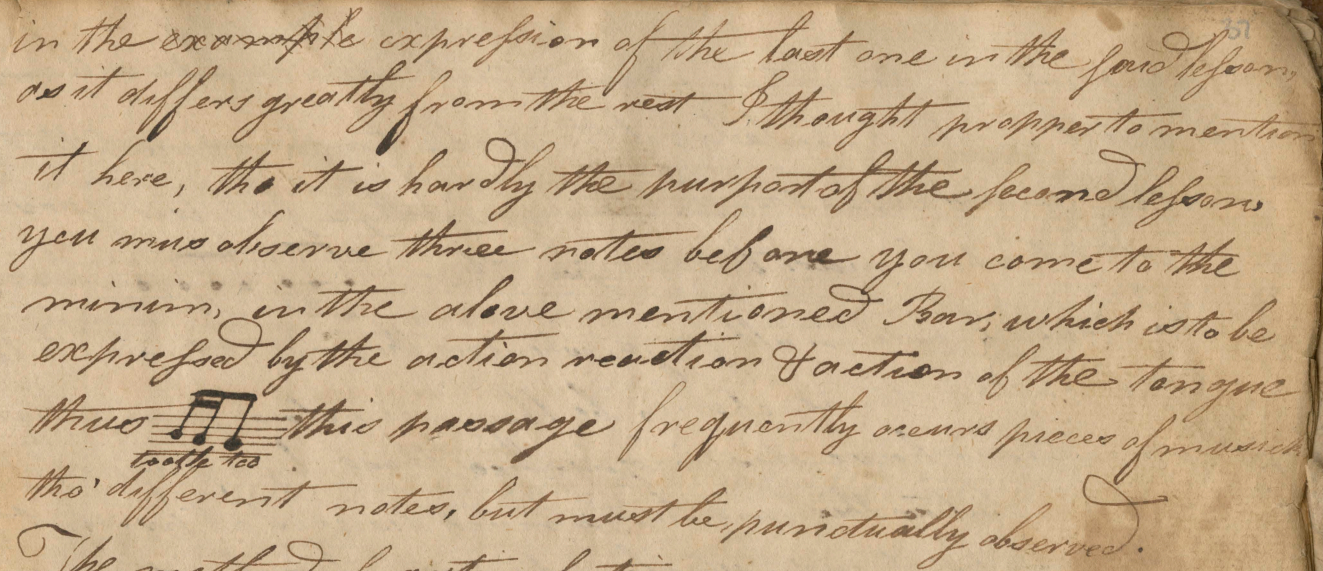 in the example expression of the last one in the said lesson,
as it differs greatly from the rest I thought propper to mention
it here, tho it is hardly the purport of the second lesson,
you mus observe three notes before you come to the
minim, in the above mentioned Bar; which is to be
expressed by the action reaction & action of the tongue
thus this passage frequently occurs pieces of musick
tootle too
tho' different notes, but must be punctually observed.
The method